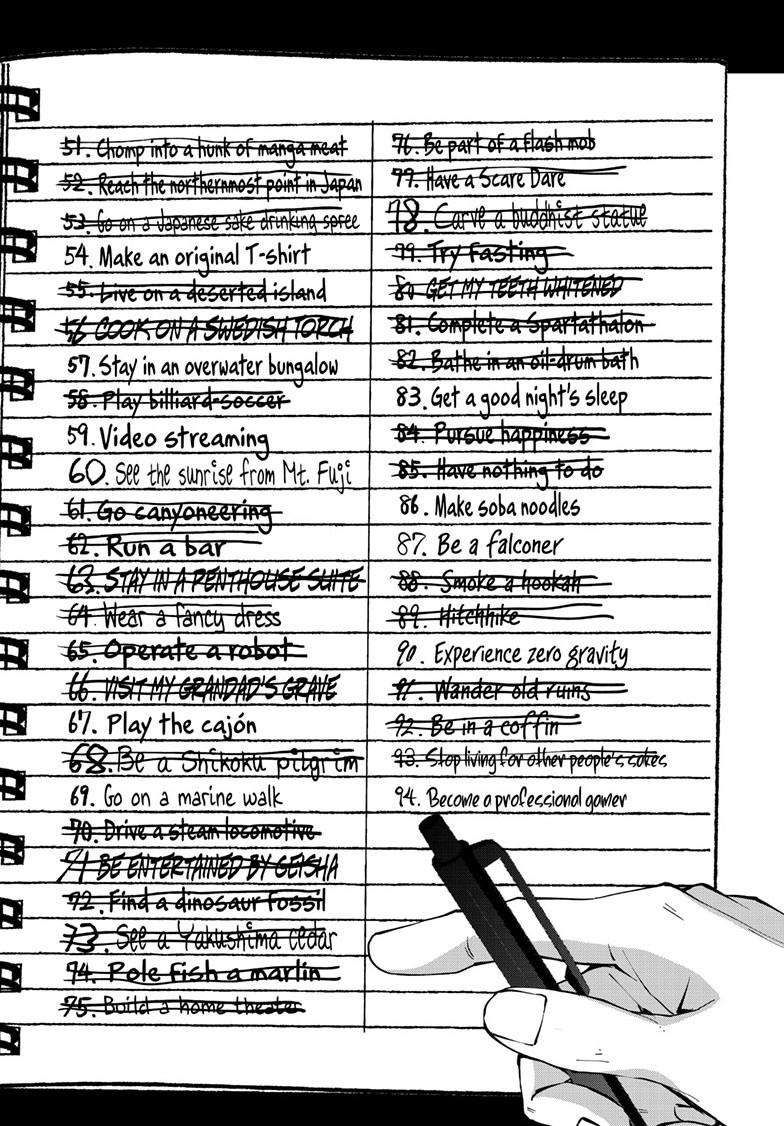 51. Chomp into a hunk of manga meat
52. Reach the northernmost point in Japan
53. Go on a Japanese sake drinking spree
54. Make an original T-shirt
55. Live on a deserted island
56 COOK ON A SWEDISH TORCH
57. Stay in an overwater bungalow
58. Play billiard-soccer
59. Video streaming
60. See the sunrise from Mt. Fuji
61. Go canyoneering
62. Run a bar
63. STAY IN A PENTHOUSE SUITE
64. Wear a fancy dress
65. Operate a robot
66. VISIT MY GRANDAD'S GRAVE
67. Play the cajón
68. Be a Shikoku pilgrim
69. Go on a marine walk
70. Drive a steam locomotive
71 BE ENTERTAINED BY GEISHA
72. Find a dinosaur fossil
73. See a Yakushima cedar
74. Pole fish a marlin
75. Build a home theater
76. Be part of a flash mob
77. Have a Scare Dare
78. Carve a buddhist statue
79. Try fasting
80 GET MY TEETH WHITENED
81. Complete a Spartathalon
82. Bathe in an oil-drum bath
83. Get a good night's sleep
84. Pursue happiness
85. Have nothing to do
86. Make soba noodles
87. Be a falconer
88. Smoke a hookah
89. Hitchhike
90. Experience zero gravity
91. Wander old ruins
92. Be in a coffin
93. Stop living for other people's sakes
94. Become a professional gamer